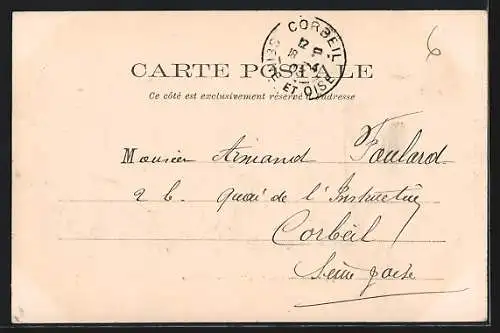 CORBEIL
SEINE ET OISE
CARTE POSTALE
Ce côté est exclusivement réservé à l'adresse
Monsieur Armand Foulard
2 b. Quai de l'
Corbeil
Seine & oise
6